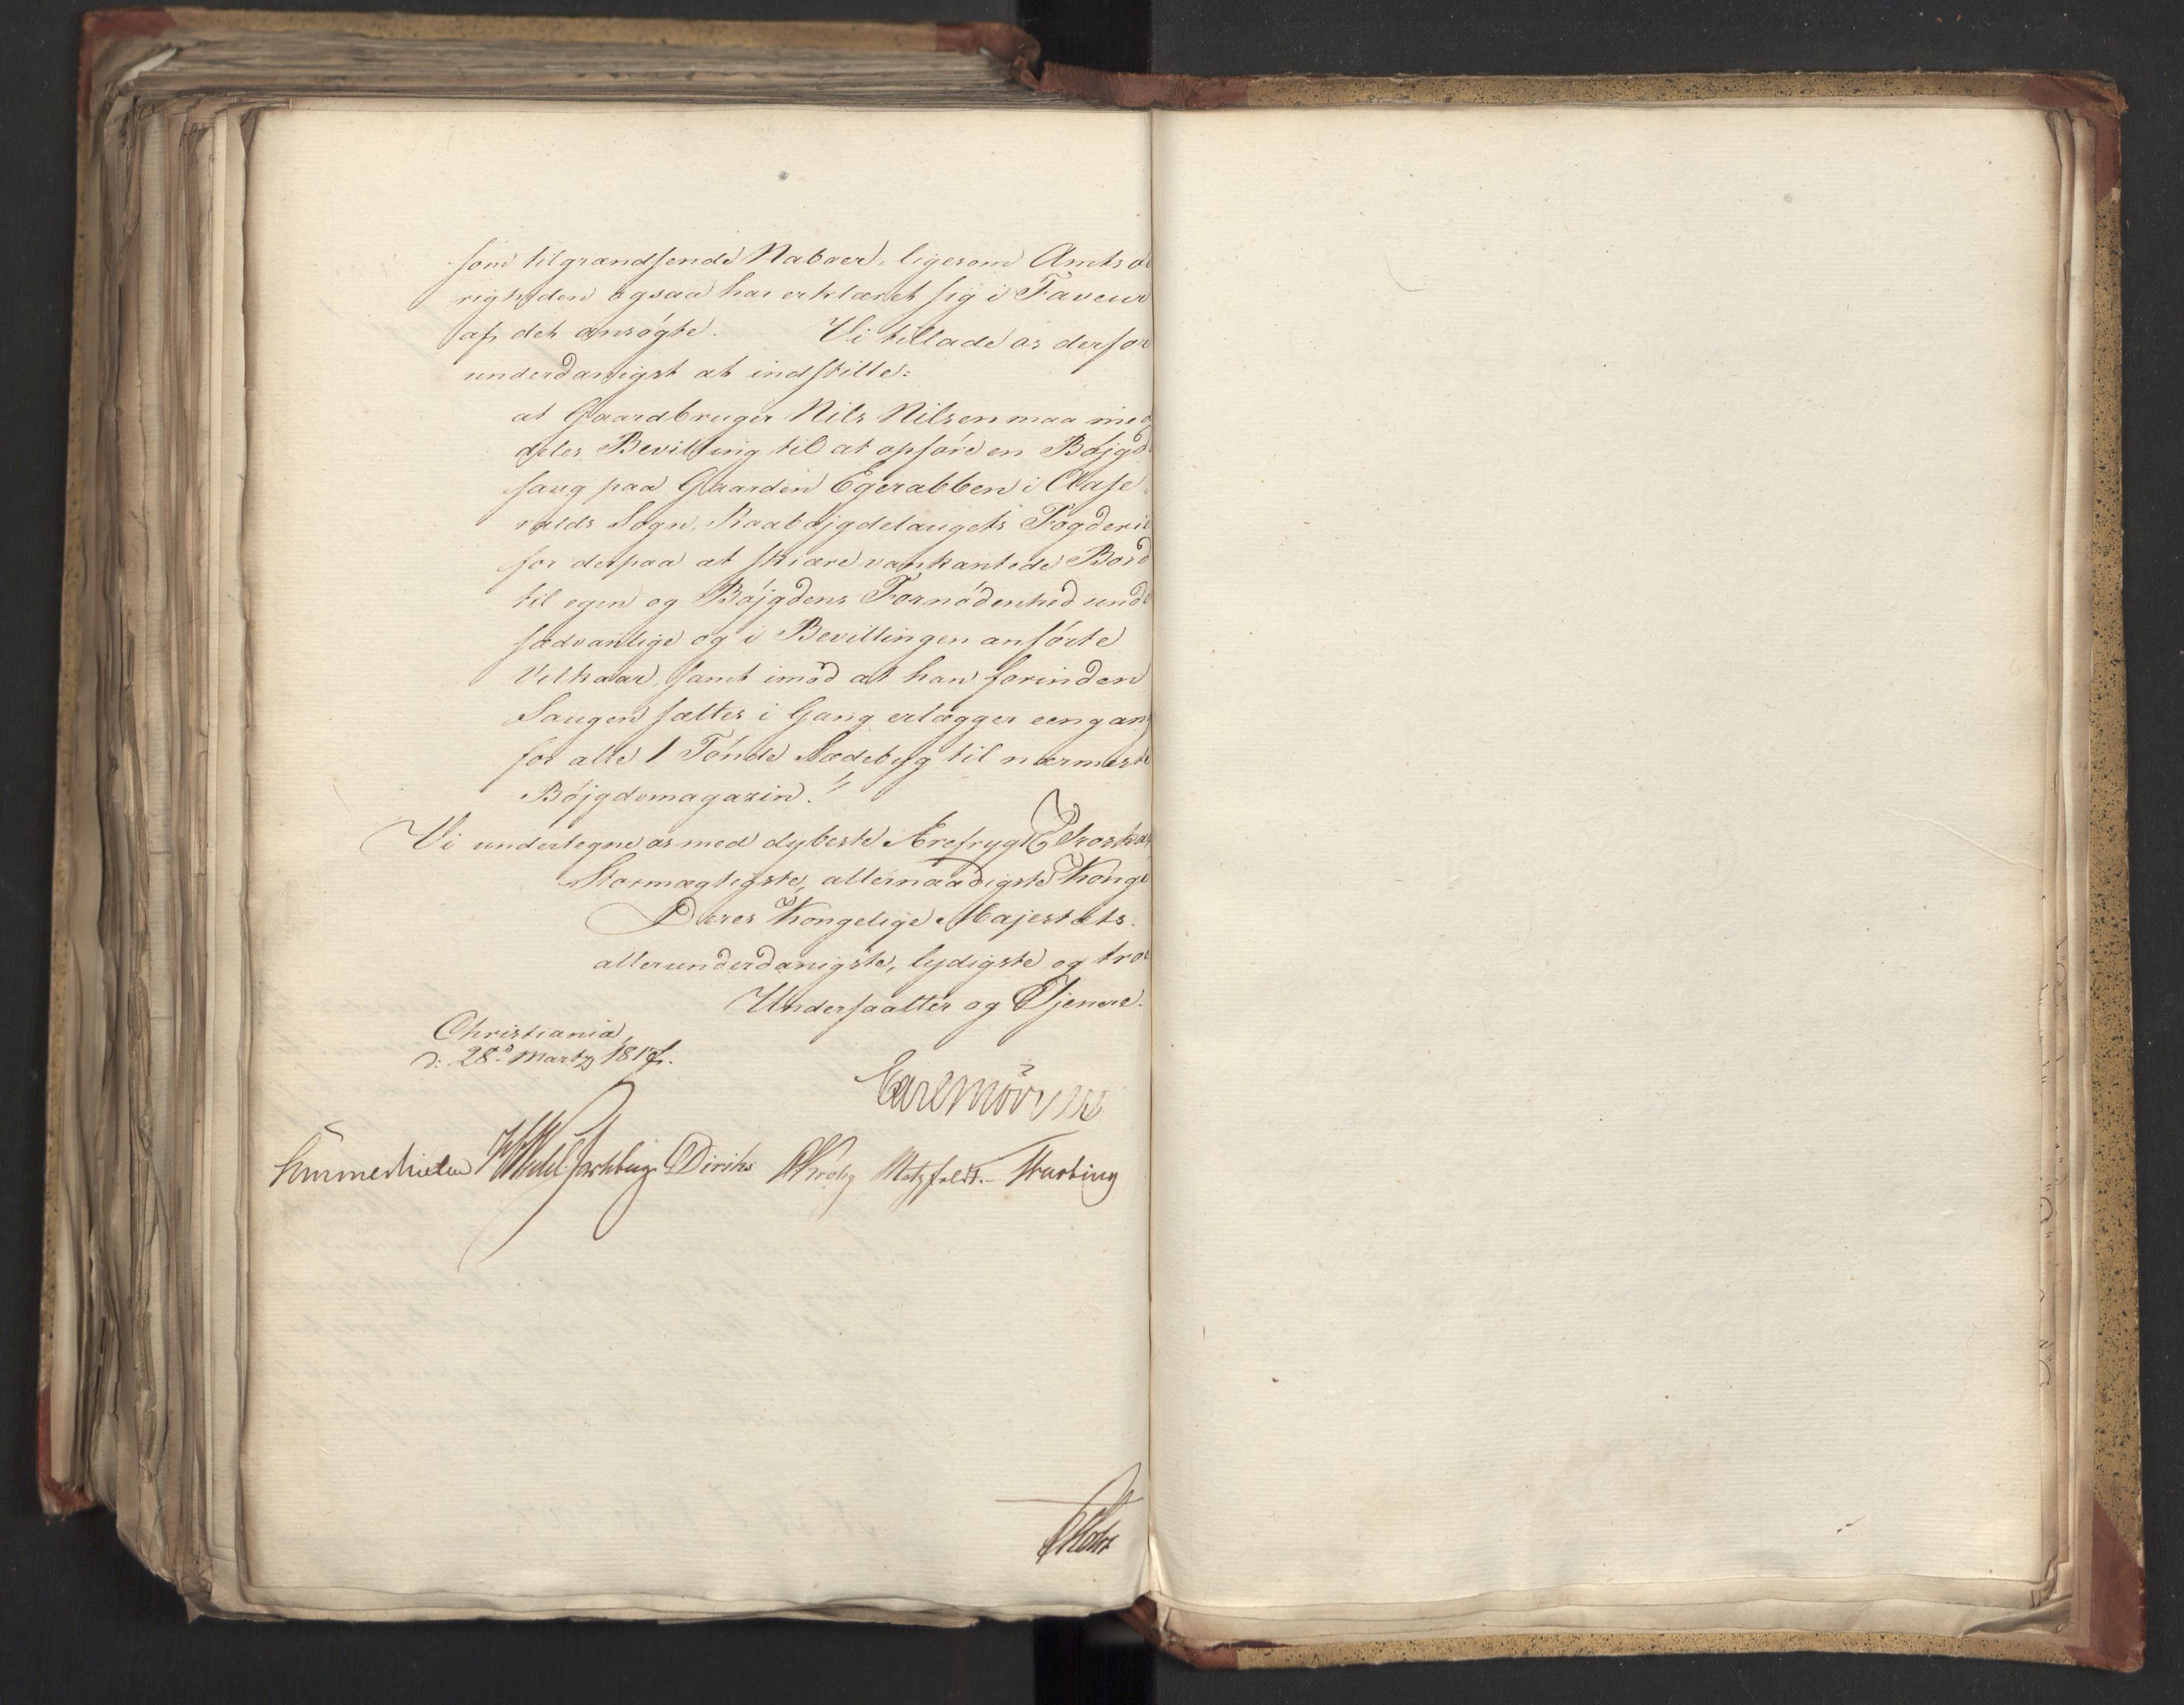 som tilgrændsende Naboer, ligesom Amtsø
righeden ogsaa har erklæret sig i Faveur
af det ansøgte. Vi tillade os derfor
underdanigst at indstille:
at Gaardbruger Nils Nilsen maa med
deles Bevilling til at opføre en Bøjgd
saug paa Gaarden Egerabben i Aase
ralds Sogn, Raabøjgdelaugets Fogderie
for derpaa at skiære vankantede Bord
til egen og Bøjgdens Fornødenhed unde
sædvanlige og i Bevillingen anførte
Vilkaar, samt imod at han forinden
Saugen sættes i Gang erlægger eengang
for alle 1 Tønde Sædebyg til nærmeste
Bøjgdemagazin.
Vi undertegne os med dybeste Ærefrygt
Stormægtigste, allernaadigste Konge
Deres Kongelige Majestæts
allerunderdanigste, lydigste og troe
Undersaatter og Tjenere.
Christiania,
d: 28d Martz 1817.
Carl Mörner
Sommerhielm Diriks Krohg Motzfeldt. Fasting